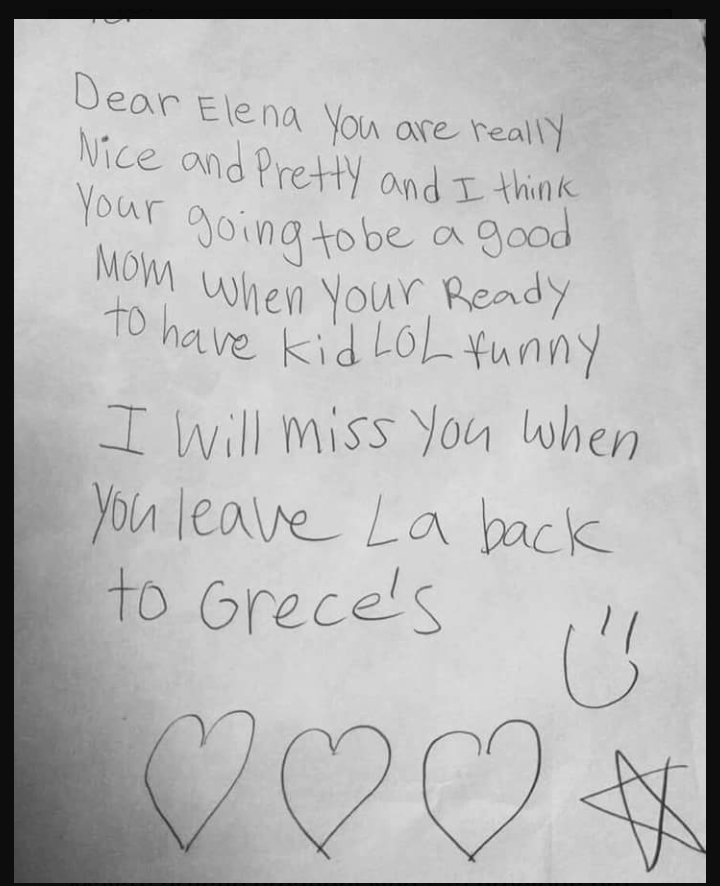 Dear Elena You are really
Nice and Pretty and I think
Your going to be a good
Mom when Your Ready
to have kid LOL funny
I Will miss You when
You leave La back
to Grece's